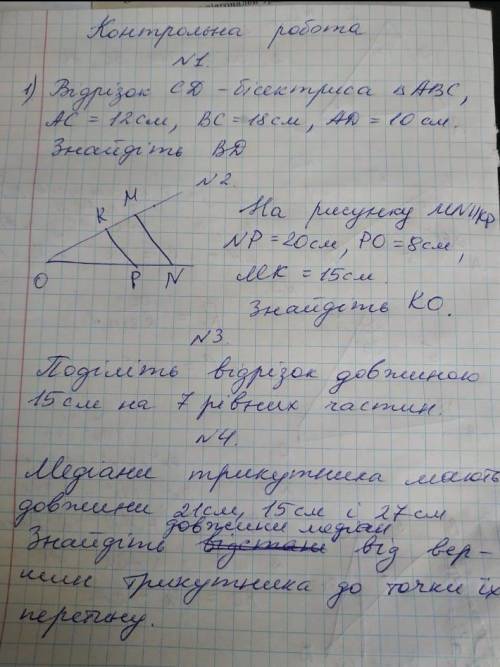 Контрольна робота
№1.
1) Відрізок CD - бісектриса △ABC,
AC = 12см, BC = 18см, AD = 10см.
Знайдіть BD
№2.
K M
O P N
На рисунку MN||KP
NP = 20см, PO = 8см,
MK = 15см.
Знайдіть KO.
№3.
Поділіть відрізок довжиною
15см на 7 рівних частин.
№4.
Медіани трикутника мають
довжини 21см, 15см і 27см
довжини медіан
Знайдіть відстані від вер-
шин трикутника до точки їх
перетину.